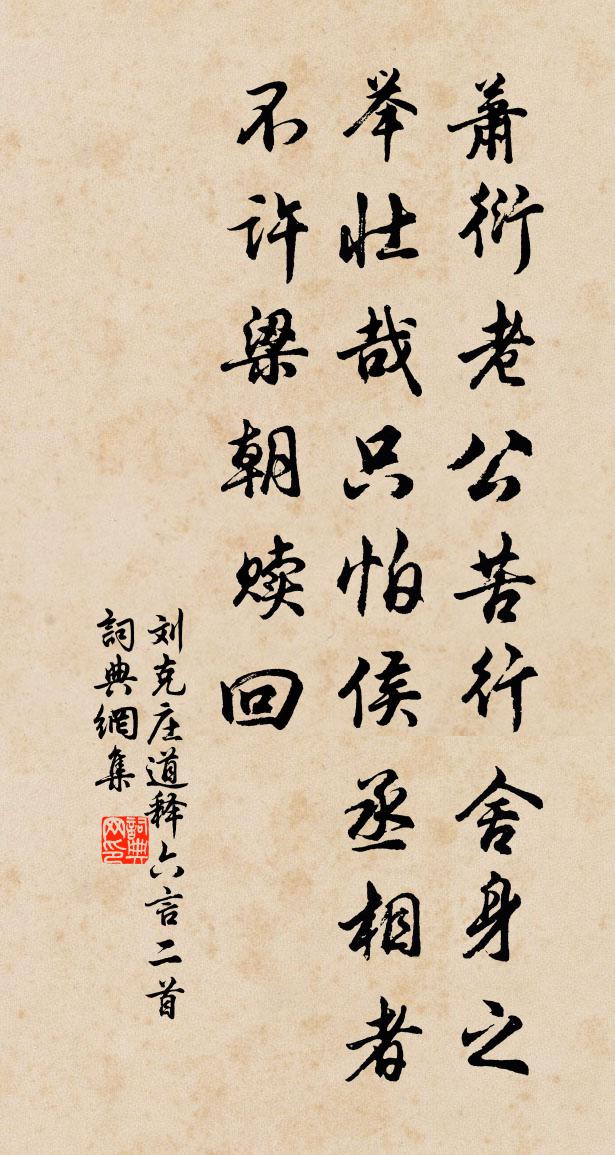 萧衍老公苦行舍身之
举壮哉只怕侯丞相者
不许梁朝赎回
刘克庄道释六言二首
詞典網集
詞典网印